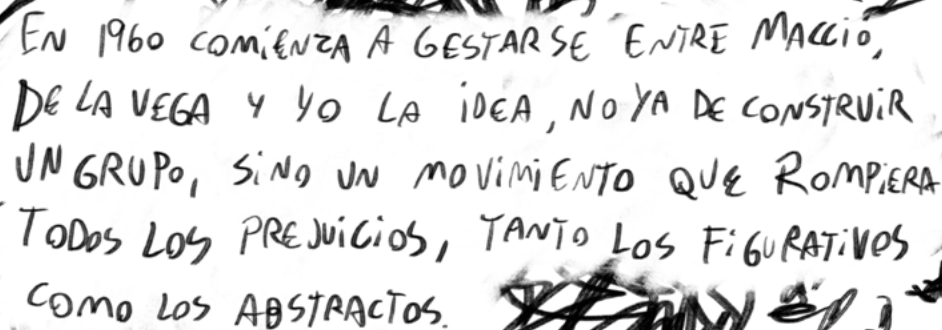 EN 1960 COMiENZA A GESTARSE ENTRE MACCiÓ,
DE LA VEGA Y YO LA iDEA, NO YA DE CONSTRUiR
UN GRUPO, SiNO UN MOViMiENTO QUE ROMPiERA
TODOS LOS PREJUiCiOS, TANTO LOS FiGURATiVOS
COMO LOS ABSTRACTOS.